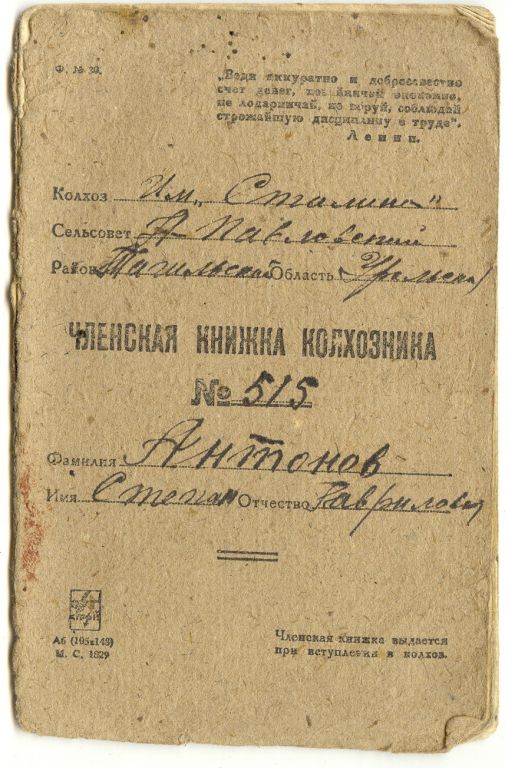 Ф. № 30.
„Веди аккуратно и добросовестно
счет денег, хозяйничай экономно,
не лодарничай, не воруй, соблюдай
строжайшую дисциплину в труде".
Ленин.
Колхоз Им. „Сталина"
Сельсовет Павловский
Район Тагильский Область Уральская
ЧЛЕНСКАЯ КНИЖКА КОЛХОЗНИКА
№ 515
Фамилия Антонов
Имя Степан Отчество Гаврилович
А6 (105x148)
М. С. 1829
Членская книжка выдается
при вступлении в колхоз.